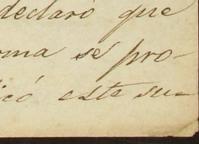 declaró que
oma se pro-
icó este su-